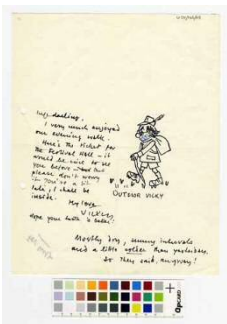 Ingdarling,
I very much enjoyed
our evening walk.
Here's the ticket for
the Festival Hall – it
would be nice to see
you before – and but
please don't worry
if you're a bit
late, I shall be
inside.
My love
VICKY
Hope your tooth is better!
OUTDOOR VICKY
Mostly dry, sunny intervals
and a little colder than yesterday.
So they said, anyway!